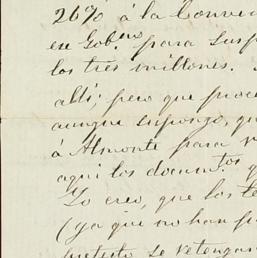 26% á la Conven
en Gob.no para susp
los tres millones.
alli; pero que proce
aunque supongo, qu
á Almonte para v
aqui los docum.tos q
Yo creo, que los te
(ya que no han pu
pretesto se retengan